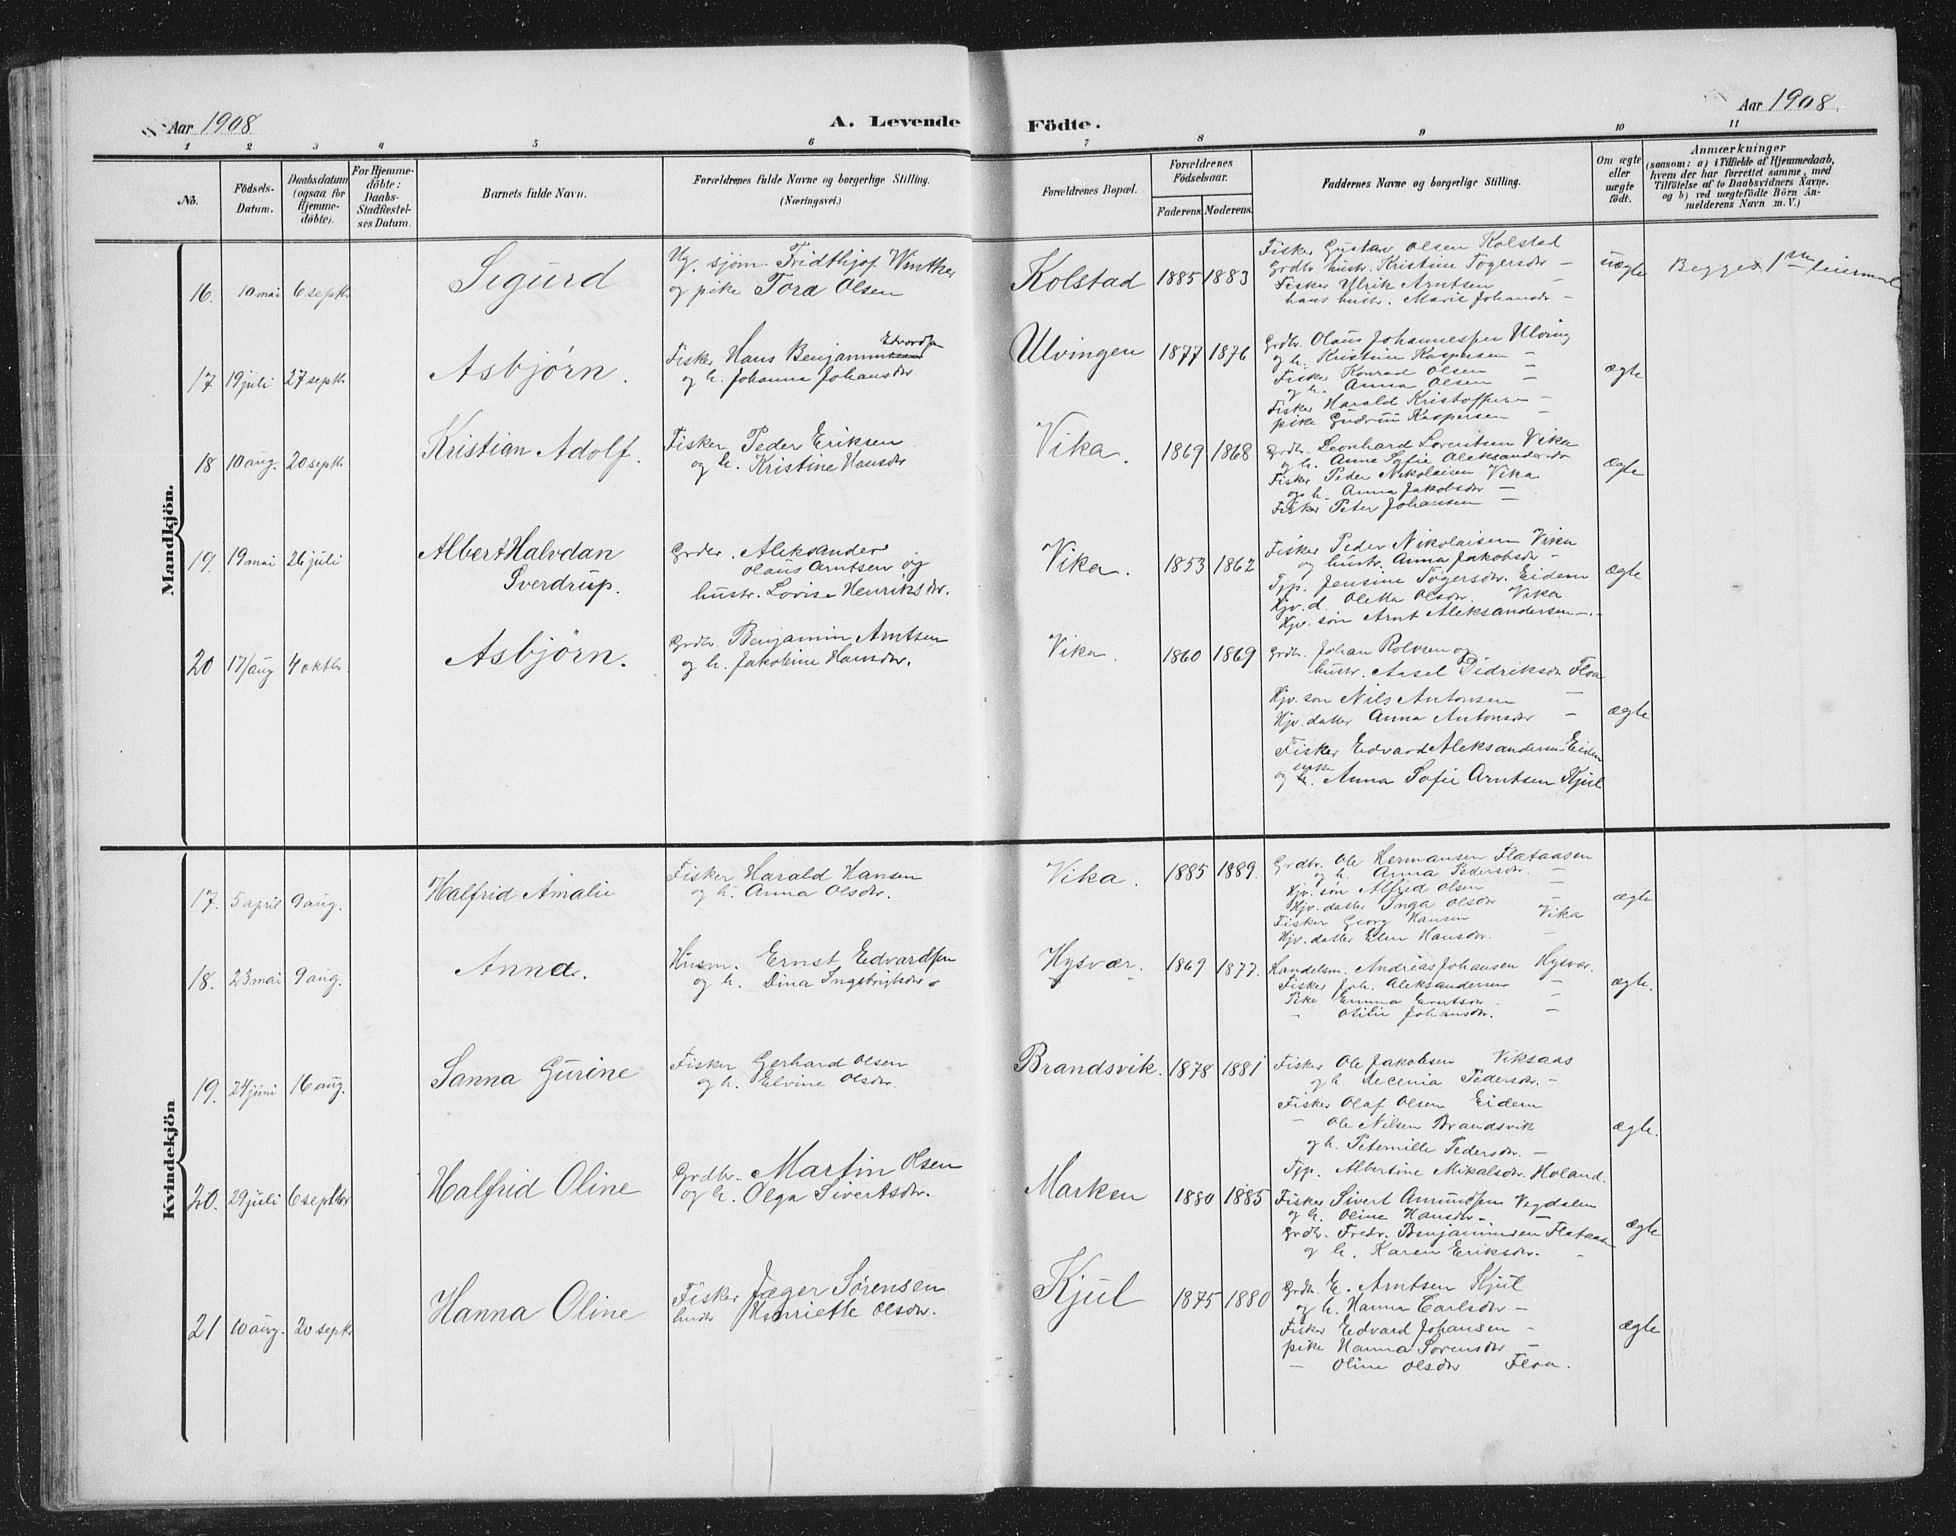 Aar 1908
A. Levende Födte.
Aar 1908.
1 2 3 4 5 6 7 8 9 10 11
No.
Födsels-Datum.
Daabsdatum (ogsaa for Hjemmedöbte).
For Hjemmedöbte: Daabs-Stadfæstelses Datum.
Barnets fulde Navn.
Forældrenes fulde Navne og borgerlige Stilling.
(Næringsvei.)
Forældrenes Bopæl.
Forældrenes Födselsaar.
Faderens Moderens.
Faddernes Navne og borgerlige Stilling.
Om ægte eller uægte födt.
Anmærkninger
(saasom: a) i Tilfælde af Hjemmedaab, hvem der har forrettet samme, med Tilföielse af to Daabsvidners Navne, og b) ved uægtefödte Börn Anmelderens Navn m. V.)
Mandkjön.
16. 10 mai 6 septbr Sigurd
Ug. sjøm. Fridthjof Winther
og pike Tora Olsen
Kolstad 1885 1883
Fisker Gustav Olsen Kolstad
Grdbr. hustr. Kristine Togersdr —
Fisker Ulrik Arntsen
hans hustr. Marie Johansdr —
uægte
Begges 1ste leiermaal
17 19 juli 27 septbr Asbjørn.
Fisker Hans Benjamin Edvardsen
og h. Johanna Johansdr
Ulvingen 1877 1876
Grdbr. Olaus Johannessen Ulving
og h. Kristine Kaspersen —
Fisker Konrad Olsen —
og h. Anna Olsen —
Fisker Harald Kristoffersen —
pike Gudrun Kaspersen —
ægte
18 10 aug. 20 septbr Kristian Adolf.
Fisker Peder Eriksen
og h. Kristine Hansdr
Vika. 1869 1868
Grdbr. Leonhard Lorentsen Vika
og h. Anne Sofie Aleksandersdr
Fisker Peder Nikolaisen Vika
og h. Anna Jakobsdr —
Fisker Peter Johansen —
ægte
19. 19 mai 26 juli Albert Halvdan
Sverdrup.
Grdbr. Aleksander
Olaus Arntsen og
hustr. Lovise Henriksdr.
Vika. 1853 1862
Fisker Peder Nikolaisen Vika
og hustr. Anna Jakobsdr —
Tjp. Jensine Togersdr. Eidem
Hjv. d. Oletta Olsdr. Vika
Hjv. søn Arnt Aleksandersen —
ægte
20 17/aug 4 oktbr Asbjørn.
Grdbr. Benjamin Arntsen
og h. Jakobine Hansdr.
Vika 1860 1869
Grdbr. Johan Rolvsen og
hustr. Aasel Didriksdr Floa
Hjv. søn Nils Antonsen —
Hjv. datter Anna Antonsdr —
Fisker Edvard Aleksandersen Eidem
og pike Anna Sofie Arntsen Kjul
ægte
Kvindekjön
17. 5 april 9 aug. Halfrid Amalie
Fisker Harald Hansen
og h. Anna Olsdr.
Vika. 1885 1889.
Grdbr. Ole Hermansen Flataasen
og h. Anna Pedersdr. —
Hjv. søn Alfred Olsen —
Hjv. datter Inga Olsdr —
Fisker Georg Hansen Vika
Hjv. datter Elen Hansdr. —
ægte
18. 23 mai 9 aug. Anna.
Husm. Ernst Edvardsen
og h. Dina Ingebrigtsdr.
Hysvær. 1869 1877.
Handelsm. Andreas Johansen Hysvær.
Fisker Joh. Aleksandersen —
Pike Emma Erntsdr. —
— Otilie Johansdr. —
ægte.
19. 24 juni 16 aug. Sanna Gurine
Fisker Gerhard Olsen
og h. Elvine Olsdr.
Brandsvik. 1878 1881
Fisker Ole Jakobsen Viksaas
og h. Decenia Pedersdr. —
Fisker Olaf Olsen Eidem
— Ole Nilsen Brandsvik
og h. Peternille Pedersdr. —
Tjp. Albertine Mikalsdr. Holand.
ægte.
20. 29 juli 6 septbr Halfrid Oline
Grdbr. Martin Olsen
og h. Olga Sivertsdr.
Marken 1880 1885
Fisker Sivert Amundsen Vegdalen
og h. Oline Hansdr. —
Grdbr. Fredr. Benjaminsen Flataas
og h. Karen Eriksdr. —
ægte
21 10 aug. 20 septbr Hanna Oline
Fisker Jæger Sørensen
hustr Henriette Olsdr.
Kjul 1875 1880
Grdbr. E. Arntsen Kjul
og h. Hanna Carlsdr —
Fisker Edvard Johansen —
pike Hanna Sørensdr —
— Oline Olsdr Floa.
ægte